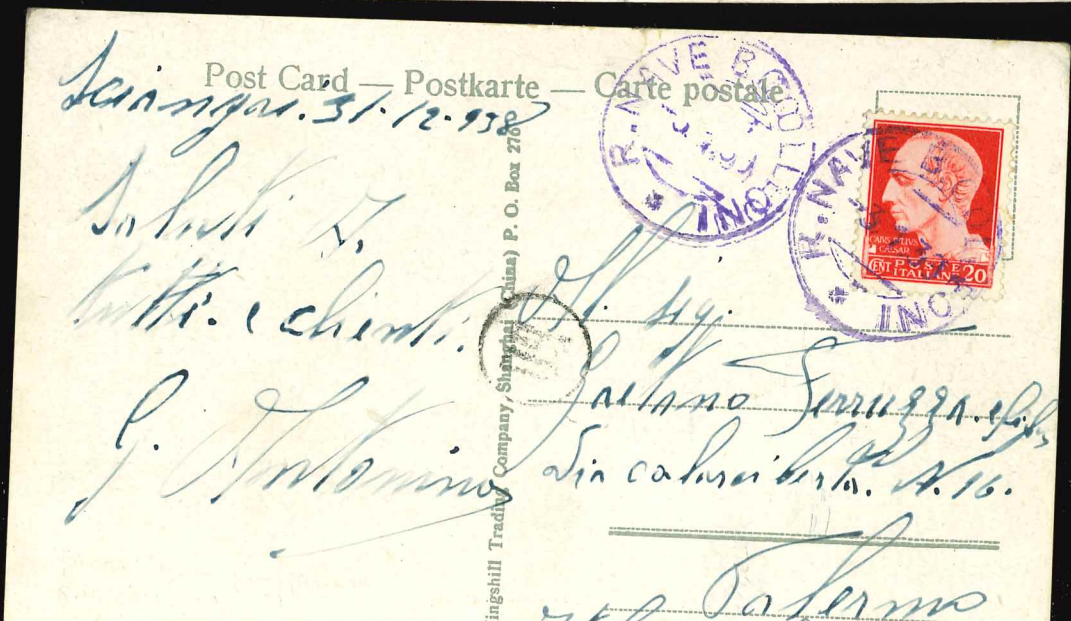 Post Card — Postkarte — Carte postale
Sciangai. 31-12-938
Saluti
tutti. e clienti.
G. Antonino
ingshill Trading Company, Shanghai (China) P. O. Box 276
R. NAVE B. COLLEONI
R. NAVE
ONI
CAIVS IVLIVS
CAESAR
CENT POSTE 20
ITALIANE
Al sig.
Gaetano Ferruzza. e figli
Via Calascibetta. N. 16.
Palermo